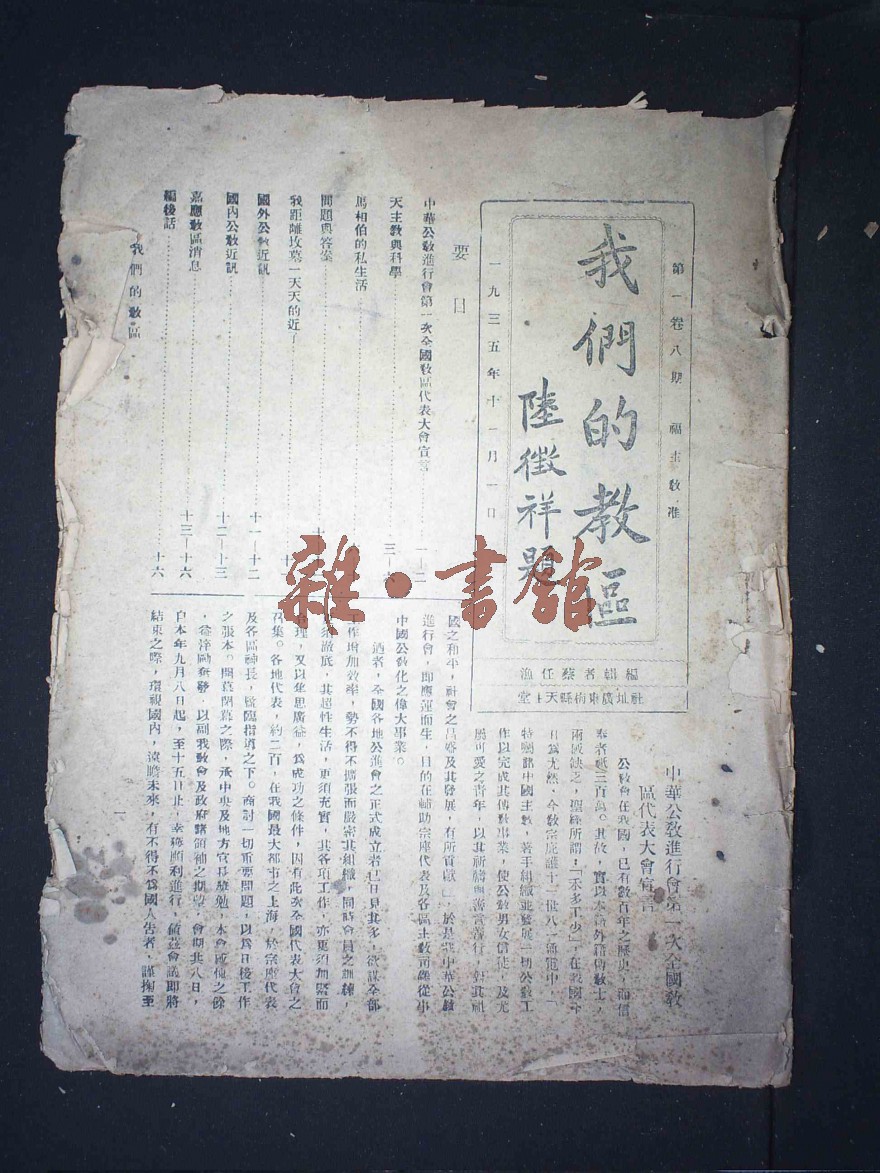 第一卷八期　福主教准
我們的教區
陸徵祥題
一九三五年十一月一日
編輯者蔡任漁
社址廣東梅縣天主堂
要目
中華公教進行會第一次全國教區代表大會宣言……一—二
天主教與科學……三—
馬相伯的私生活……
問題與答案……十
我距離坟墓一天天的近了……十
國外公教近訊……十一—十二
國內公教近訊……十二—十三
嘉應教區消息……十三—十六
編後話……十六
中華公教進行會第一次全國教
區代表大會宣言
公教會在我國，已有數百年之歷史，而信
奉者祗三百萬。其故，實以本籍外籍傳教士，
兩感缺乏，聖經所謂：「禾多工少」，在我國今
日爲尤然。今教宗庇護十一世八一通電中，「
特囑託中國主教，著手組織並發展一切公教工
作以完成其傳教事業，使公教男女信徒，及尤
屬可愛之青年，以其祈禱與善言善行，對其祖
國之和平，社會之昌盛及其發展，有所貢獻」於是我中華公教
進行會，即應運而生，目的在輔助宗座代表及各區主教司鐸從事
中國公教化之偉大事業。
迺者，全國各地公進會之正式成立者已日見其多，欲謀全部
工作增加效率，勢不得不擴張而嚴密其組織，同時會員之訓練，
須澈底，其超性生活，更須充實，其各項工作，亦更須加緊而
合理，又以集思廣益，爲成功之條件，因有此次全國代表大會之
召集。各地代表，約二百，在我國最大都市之上海，於宗座代表
及各區神長，監臨指導之下。商討一切重要問題，以爲日後工作
之張本。開幕閉幕之際，承中央及地方官長蒞勉，本會感愧之餘
，益淬勵奮發，以副我教會及政府諸領袖之期望。會期共八日，
自本年九月八日起，至十五日止，幸獲順利進行，茲會議即將
結束之際，環視國內，遠瞻未來，有不得不爲國人告者，謹掬至
我們的教區
一
雜·書館